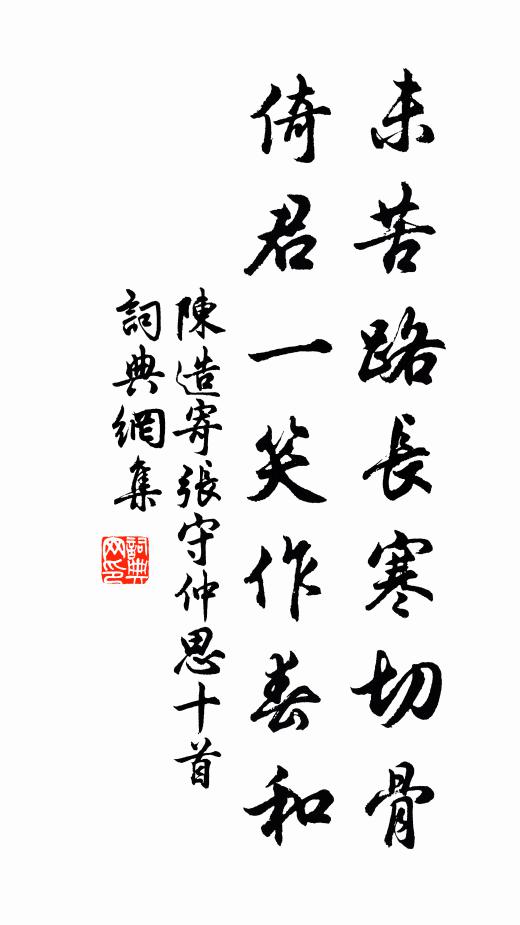 未苦路長寒切骨
倚君一笑作春和
陳造寄張守仲思十首
詞典網集
詞典网印